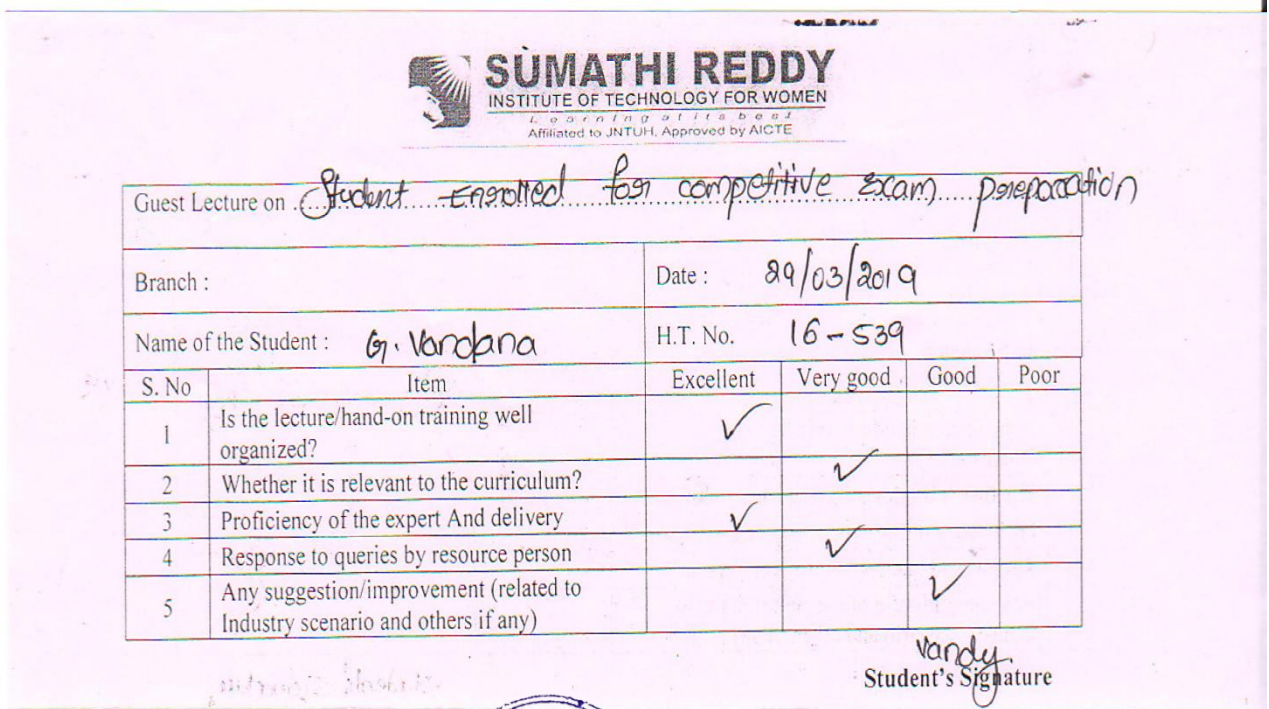 SUMATHI REDDY
INSTITUTE OF TECHNOLOGY FOR WOMEN
Learning at its best
Affiliated to JNTUH, Approved by AICTE
Guest Lecture on Student Enrolled for competitive Exam preparation
Branch :
Date : 29/03/2019
Name of the Student : G. Vandana
H.T. No. 16-539
S. No Item Excellent Very good Good Poor
1 Is the lecture/hand-on training well
organized? ✓
2 Whether it is relevant to the curriculum? ✓
3 Proficiency of the expert And delivery ✓
4 Response to queries by resource person ✓
5 Any suggestion/improvement (related to
Industry scenario and others if any) ✓
Vandy.
Student's Signature